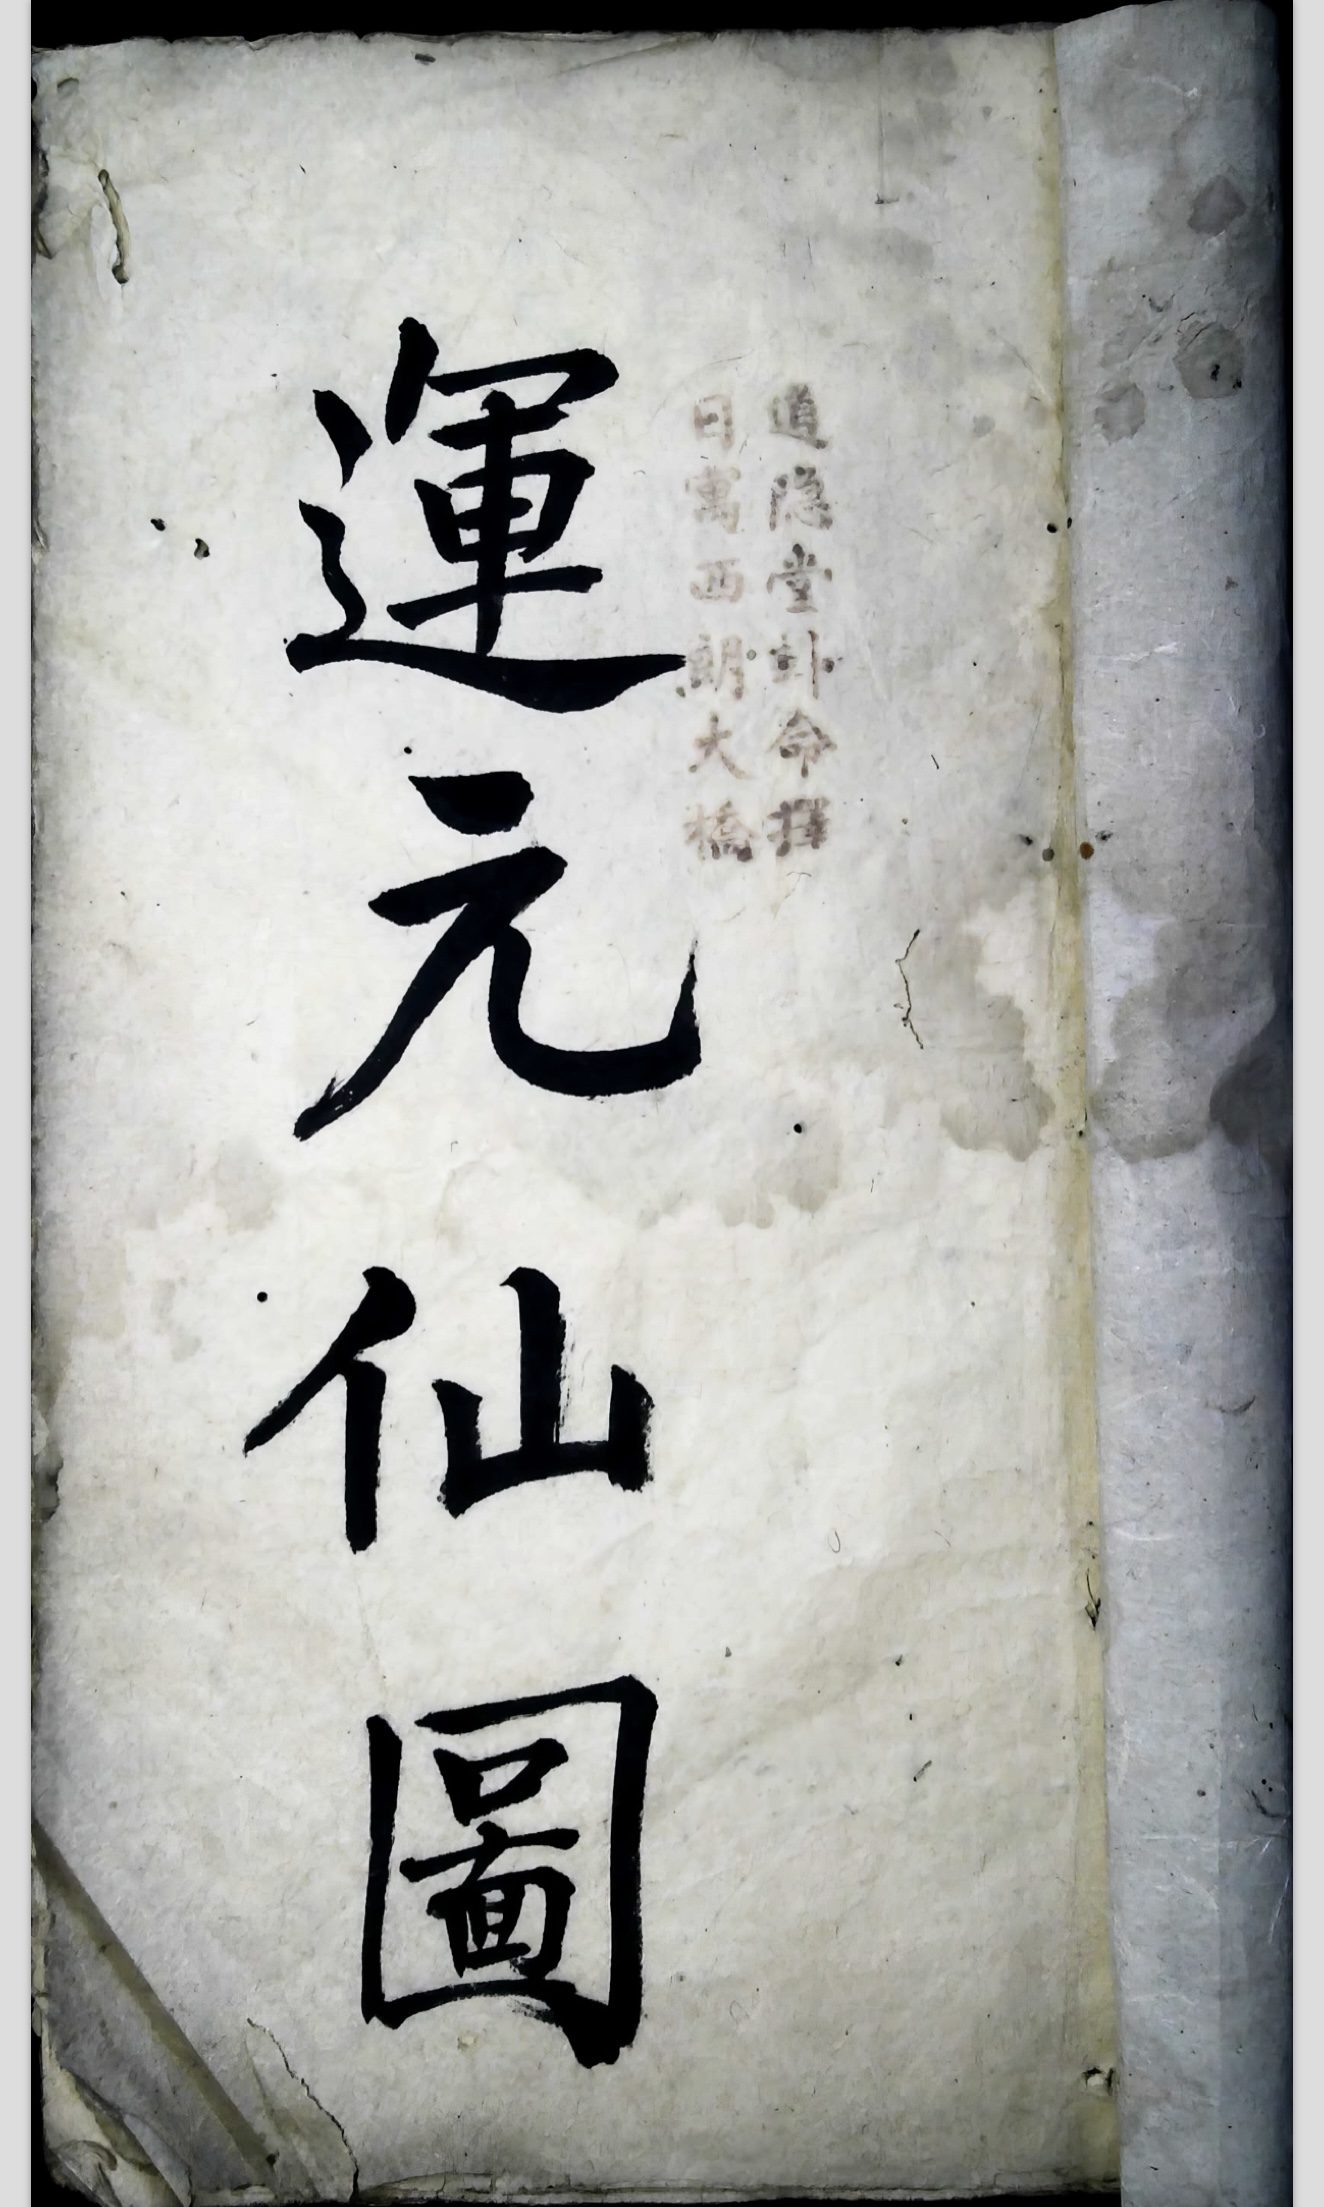 道隐堂卦命擇
日寓西朗大橋
運元仙圖